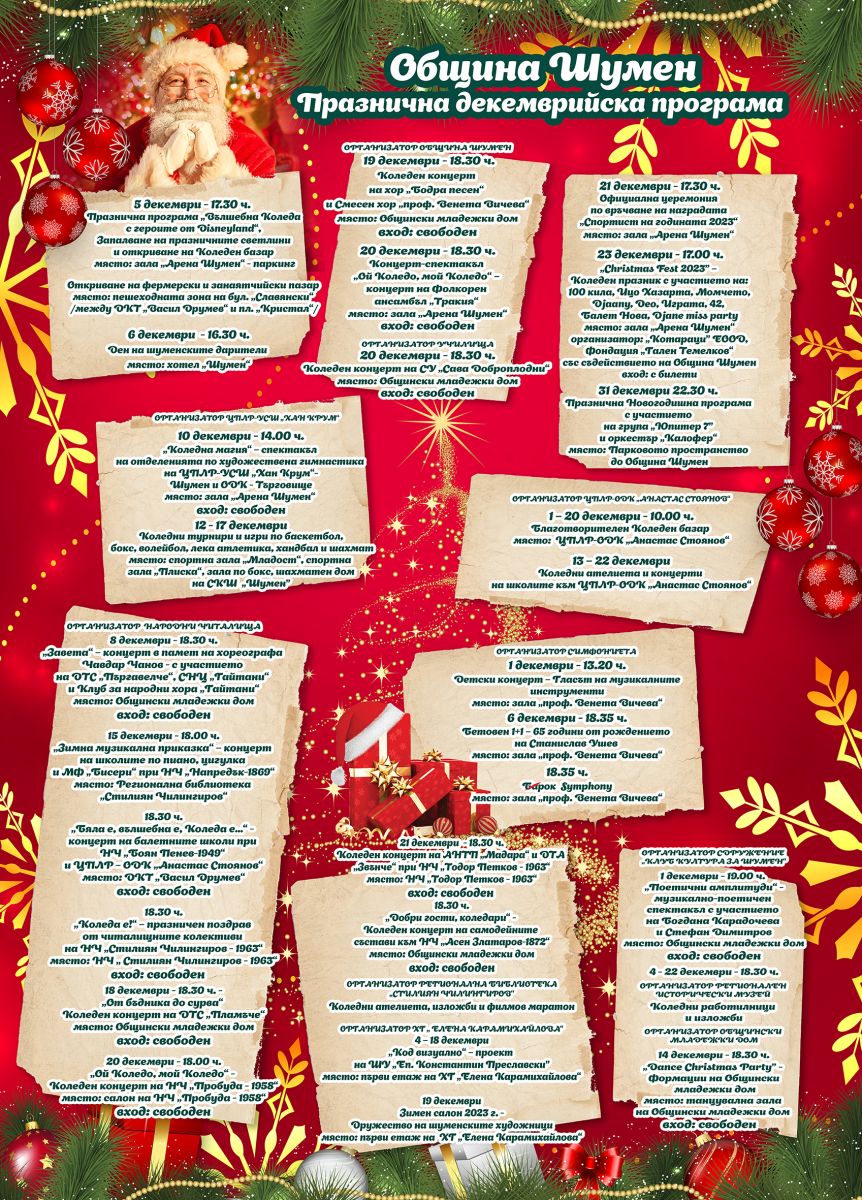 Община Шумен
Празнична декемврийска програма
5 декември - 17.30 ч.
Празнична програма „Вълшебна Коледа
с героите от Disneyland“,
Запалване на празничните светлини
и откриване на Коледен базар
място: зала „Арена Шумен“ - паркинг
Откриване на фермерски и занаятчийски пазар
място: пешеходната зона на бул. „Славянски“
/между ДКТ „Васил Друмев“ и пл. „Кристал“/
6 декември - 16.30 ч.
Ден на шуменските дарители
място: хотел „Шумен“
ОРГАНИЗАТОР ОБЩИНА ШУМЕН
19 декември - 18.30 ч.
Коледен концерт
на хор „Бодра песен“
и Смесен хор „проф. Венета Вичева“
място: Общински младежки дом
вход: свободен
20 декември - 18.30 ч.
Концерт-спектакъл
„Ой Коледо, мой Коледо“ –
концерт на Фолкорен
ансамбъл „Тракия“
място: зала „Арена Шумен“
вход: свободен
ОРГАНИЗАТОР УЧИЛИЩА
20 декември - 18.30 ч.
Коледен концерт на СУ „Сава Доброплодни“
място: Общински младежки дом
вход: свободен
21 декември - 17.30 ч.
Официална церемония
по връчване на наградата
„Спортист на годината 2023“
място: зала „Арена Шумен“
23 декември - 17.00 ч.
„Christmas Fest 2023” –
Коледен празник с участието на:
100 кила, Ицо Хазарта, Момчето,
Djaany, Dео, Играта, 42,
Балет Нова, Djane miss party
място: зала „Арена Шумен“
организатор: „Котараци” ЕООD,
фондация „Гален Темелков“
със съдействието на Община Шумен
вход: с билети
31 декември 22.30 ч.
Празнична Новогодишна програма
с участието
на група „Юпитер 7”
и оркестър „Калофер“
място: Парковото пространство
до Община Шумен
ОРГАНИЗАТОР ЦПЛР-УСШ „ХАН КРУМ“
10 декември - 14.00 ч.
„Коледна магия“ – спектакъл
на отделенията по художествена гимнастика
на ЦПЛР-УСШ „Хан Крум“–
Шумен и ОДК - Търговище
място: зала „Арена Шумен“
вход: свободен
12 - 17 декември
Коледни турнири и игри по баскетбол,
бокс, волейбол, лека атлетика, хандбал и шахмат
място: спортна зала „Младост“, спортна
зала „Плиска“, зала по бокс, шахматен дом
на СКШ „Шумен”
ОРГАНИЗАТОР ЦПЛР-ОДК „АНАСТАС СТОЯНОВ“
1 – 20 декември - 10.00 ч.
Благотворителен Коледен базар
място: ЦПЛР-ОДК „Анастас Стоянов“
13 – 22 декември
Коледни ателиета и концерти
на школите към ЦПЛР-ОДК „Анастас Стоянов“
ОРГАНИЗАТОР НАРОДНИ ЧИТАЛИЩА
8 декември - 18.30 ч.
„Завета“ – концерт в памет на хореографа
Чавдар Чанов - с участието
на ДТС „Пъргавелче“, СНЦ „Гайтани“
и Клуб за народни хора „Гайтани“
място: Общински младежки дом
вход: свободен
15 декември - 18.00 ч.
„Зимна музикална приказка“ – концерт
на школите по пиано, цигулка
и МФ „Бисери“ при НЧ „Напредък-1869“
място: Регионална библиотека
„Стилиян Чилингиров“
18.30 ч.
„Бяла е, вълшебна е, Коледа е...“ –
концерт на балетните школи при
НЧ „Боян Пенев-1949“
и ЦПЛР – ОДК „Анастас Стоянов“
място: ДКТ „Васил Друмев“
вход: свободен
18.30 ч.
„Коледа е!“ – празничен поздрав
от читалищните колективи
на НЧ „Стилиян Чилингиров - 1963“
място: НЧ „ Стилиян Чилингиров - 1963“
вход: свободен
18 декември - 18.30 ч. -
„От бъдника до сурва“
Коледен концерт на ДТС „Пламъче“
място: Общински младежки дом
вход: свободен
20 декември - 18.00 ч.
„Ой Коледо, мой Коледо“ –
Коледен концерт на НЧ „Пробуда - 1958“
място: салон на НЧ „Пробуда - 1958“
вход: свободен
ОРГАНИЗАТОР СИМФОНИЕТА
1 декември - 13.20 ч.
Детски концерт – Гласът на музикалните
инструменти
място: зала „проф. Венета Вичева“
6 декември - 18.35 ч.
Бетовен 1+1 – 65 години от рождението
на Станислав Ушев
място: зала „проф. Венета Вичева“
18.35 ч.
Барок Symphony
място: зала „проф. Венета Вичева“
21 декември - 18.30 ч.
Коледен концерт на АНТП „Мадара“ и ДТА
„Звънче“ при НЧ „Тодор Петков - 1963“
място: НЧ „Тодор Петков - 1963“
вход: свободен
18.30 ч.
„Добри гости, коледари“ –
Коледен концерт на самодейните
състави към НЧ „Асен Златаров-1872“
място: Общински младежки дом
вход: свободен
ОРГАНИЗАТОР РЕГИОНАЛНА БИБЛИОТЕКА
„СТИЛИЯН ЧИЛИНГИРОВ“
Коледни ателиета, изложби и филмов маратон
ОРГАНИЗАТОР ХГ „ ЕЛЕНА КАРАМИХАЙЛОВА“
4 - 18 декември
„Код визуално“ – проект
на ШУ „Еп. Константин Преславски”
място: първи етаж на ХГ „Елена Карамихайлова“
19 декември
Зимен салон 2023 г. –
Дружество на шуменските художници
място: първи етаж на ХГ „Елена Карамихайлова“
ОРГАНИЗАТОР СДРУЖЕНИЕ
„КЛУБ КУЛТУРА ЗА ШУМЕН“
1 декември - 19.00 ч.
„Поетични амплитуди“ –
музикално-поетичен
спектакъл с участието
на Богдана Карадочева
и Стефан Димитров
място: Общински младежки дом
вход: свободен
4 - 22 декември - 18.30 ч.
ОРГАНИЗАТОР РЕГИОНАЛЕН
ИСТОРИЧЕСКИ МУЗЕЙ
Коледни работилници
и изложби
ОРГАНИЗАТОР ОБЩИНСКИ
МЛАДЕЖКИ ДОМ
14 декември - 18.30 ч.
„Dance Christmas Party” –
формации на Общински
младежки дом
място: танцувална зала
на Общински младежки дом
вход: свободен